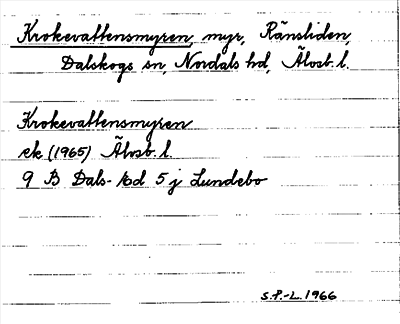 Krokevattensmyren, myr, Ränsliden,
Dalskogs sn, Nordals hd, Älvsb. l.
Krokevattensmyren
ek (1965) Älvsb. l.
9 B Dals-Ed 5 j Lundebo
S.F.-L. 1966